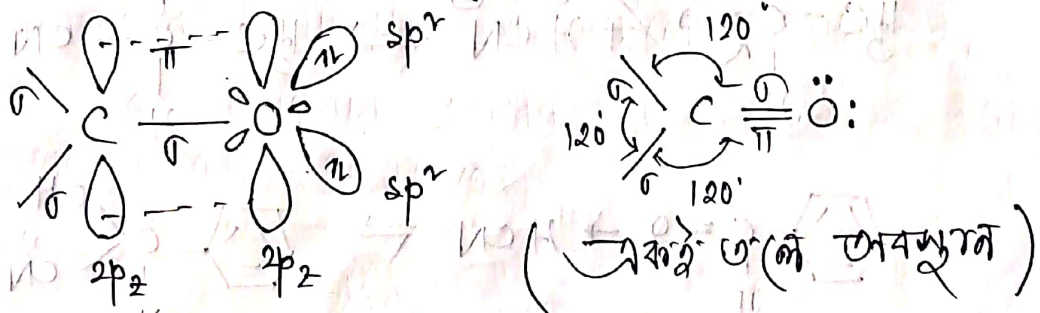 π sp²
σ C σ O
σ sp²
2p_z 2p_z
120°
σ C σ π Ö:
120°
σ 120°
(একই তলে অবস্থান)